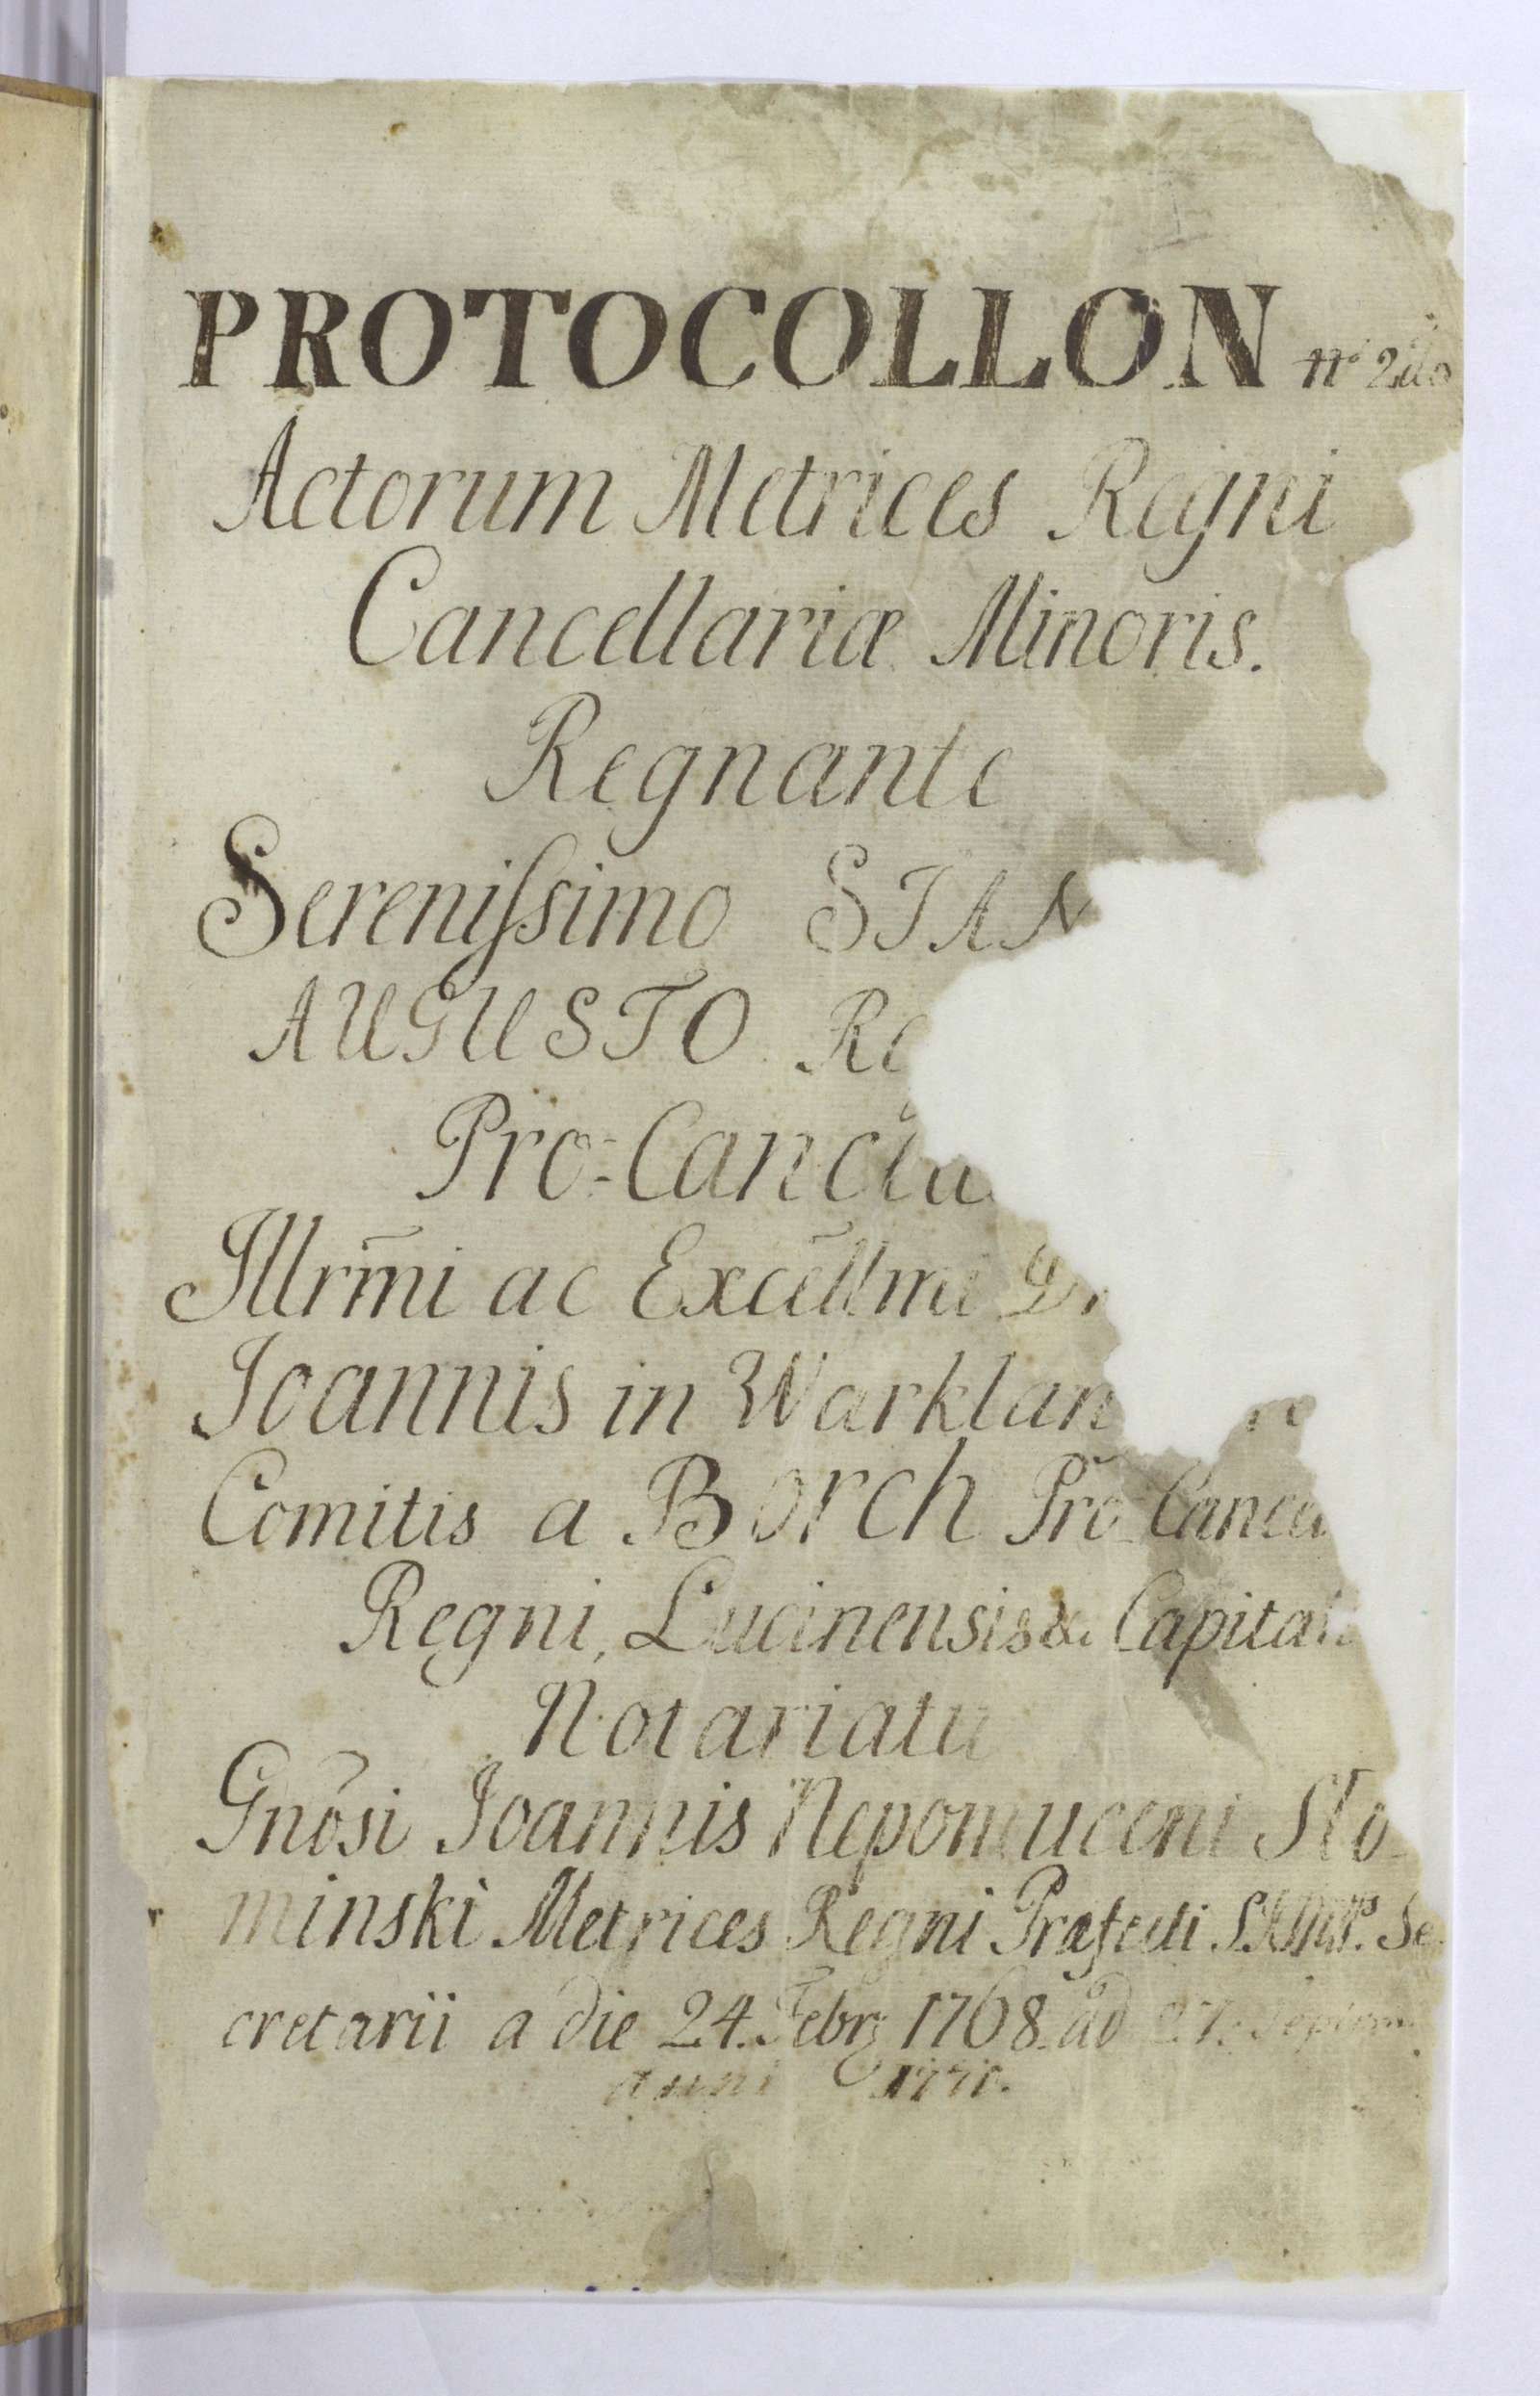 PROTOCOLLON nº 2do
Actorum Metrices Regni
Cancellariæ Minoris.
Regnante
Sereniſsimo STAN
AUGUSTO
Pro-Cancla
Illrm̃i ac Excellm̃i
Joannis in Warklan
Comitis a Borch Pro Cance
Regni, Lucinensis &c Capita
Notariatu
Gnõsi Joannis Nepomuceni Slo
minski Metrices Regni Præfecti Se
cretarii a die 24. Febrz 1768. ad 27. Septem
anni